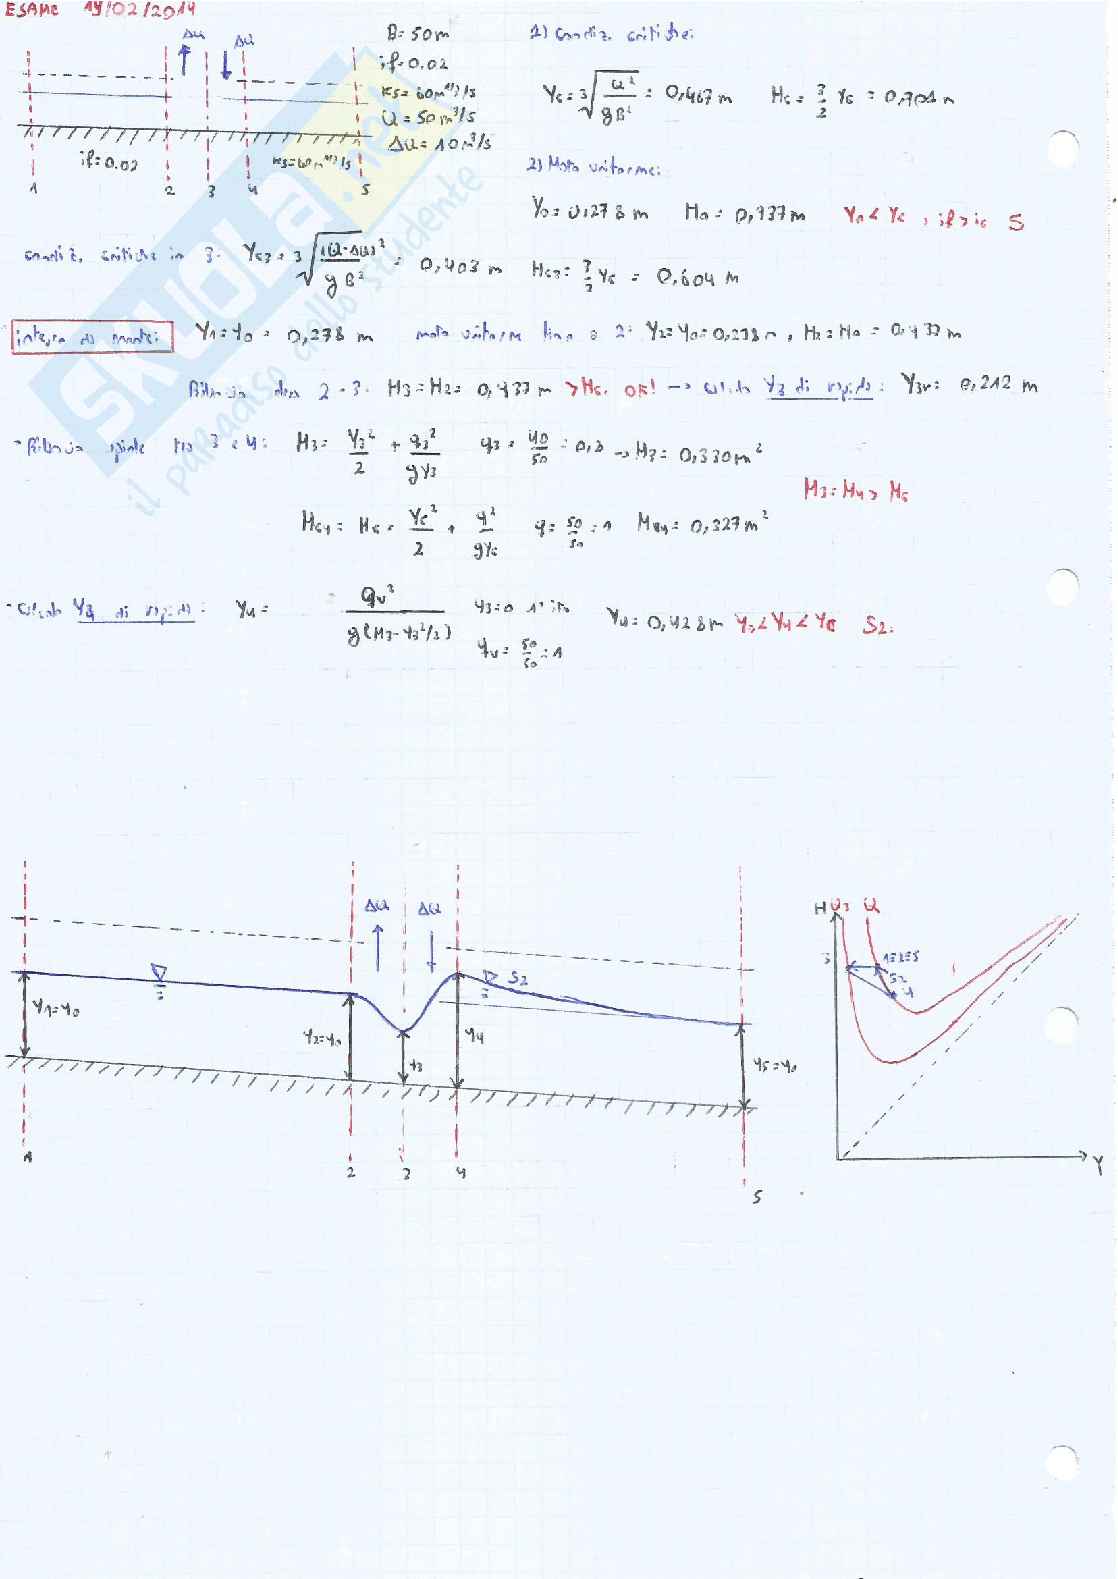 ESAME 19/02/2014
ΔQ ΔQ
B = 50 m
if = 0.02
Ks = 60 m^1/3/s
Q = 50 m³/s
ΔQ = 10 m³/s
if = 0.02
Ks = 60 m^1/3/s
1 2 3 4 5
1) condiz. critiche:
Yc = ∛(Q²/gB²) = 0,467 m Hc = 3/2 Yc = 0,701 m
2) Moto uniforme:
Y0 = 0,278 m H0 = 0,937 m Y0 < Yc, if > ic S
condiz. critiche in 3: Yc3 = ∛((Q-ΔQ)²/gB²) = 0,403 m Hc3 = 3/2 Yc = 0,604 m
integro da monte: Y1 = Y0 = 0,278 m moto uniforme fino a 2: Y2 = Y0 = 0,278 m, H2 = H0 = 0,937 m
Bilancio 2 - 3: H3 = H2 = 0,937 m > Hc. OK! → calcolo Y3 di rapida: Y3r = 0,212 m
- Bilancio spinte tra 3 e 4: M3 = Y3²/2 + q3²/gY3 q3 = 40/50 = 0,8 → M3 = 0,330 m²
M3 = M4 > Mc
Mc4 = Mc = Yc²/2 + q²/gYc q = 50/50 = 1 Mc4 = 0,327 m²
- calcolo Y4 di rapida: Y4 = q4²/g(M3 - Y3²/2) Y3 = 0 1° it. Y4 = 0,428 m Y3 < Y4 < Yc S2.
q4 = 50/50 = 1
ΔQ ΔQ
S2
Y1 = Y0
Y2 = Y0
Y3
Y4
Y5 = Y0
1 2 3 4 5
H Q3 Q
3
1≡2≡5
S2
4
Y
SKUOLA.net
il paradiso dello studente